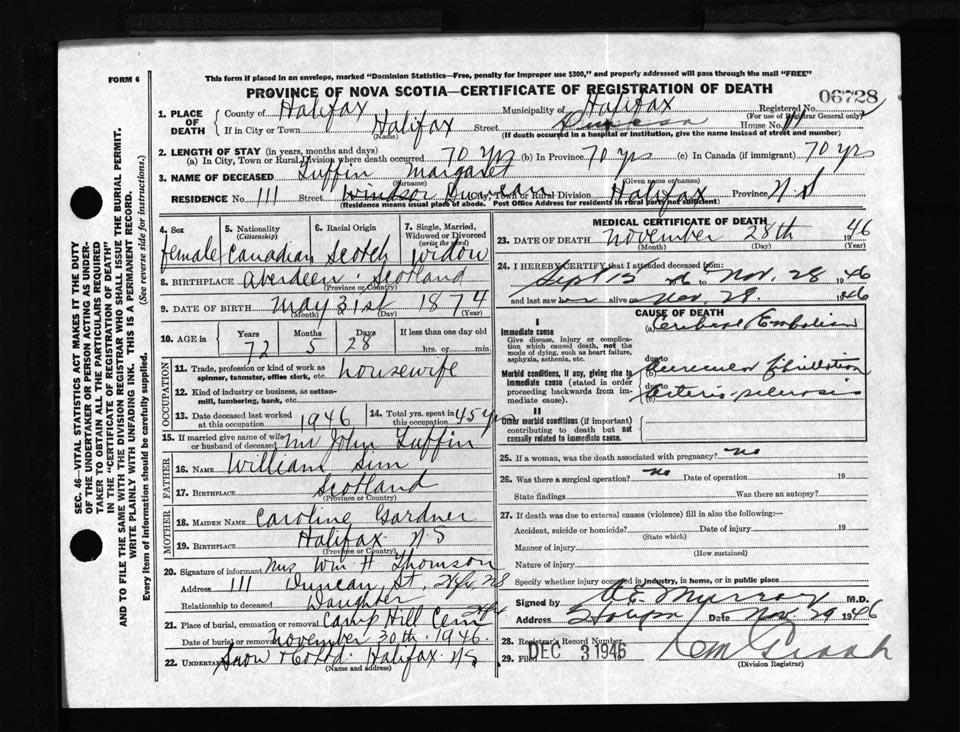 FORM 6
This form if placed in an envelope, marked "Dominion Statistics—Free, penalty for improper use $300," and properly addressed will pass through the mail "FREE"
PROVINCE OF NOVA SCOTIA—CERTIFICATE OF REGISTRATION OF DEATH
06728
1. PLACE OF DEATH
County of Halifax Municipality of Halifax Registered No.
(For use of Registrar General only)
If in City or Town Halifax Street House No.
(Name) (If death occurred in a hospital or institution, give the name instead of street and number)
2. LENGTH OF STAY (in years, months and days)
(a) In City, Town or Rural Division where death occurred 70 yrs (b) In Province 70 yrs (c) In Canada (if immigrant) 70 yrs
3. NAME OF DECEASED Tuffin Margaret
(Surname) (Given name or names)
RESIDENCE No. 111 Street Windsor Duncan City, Town or Rural Division Halifax Province N.S
(Residence means usual place of abode. Post Office Address for residents in rural parts not sufficient)
4. Sex
female
5. Nationality
(Citizenship)
Canadian
6. Racial Origin
Scotch
7. Single, Married, Widowed or Divorced
(write the word)
Widow
8. BIRTHPLACE Aberdeen Scotland
(Province or Country)
9. DATE OF BIRTH May 31st 1874
(Month) (Day) (Year)
10. AGE in
Years Months Days If less than one day old
72 5 28 hrs. or min.
OCCUPATION
11. Trade, profession or kind of work as spinner, teamster, office clerk, etc. housewife
12. Kind of industry or business, as cotton-mill, lumbering, bank, etc.
13. Date deceased last worked at this occupation 1946
14. Total yrs. spent in this occupation 45 yrs
15. If married give name of wife or husband of deceased Mr John Tuffin
FATHER
16. NAME William Sim
17. BIRTHPLACE Scotland
(Province or Country)
MOTHER
18. MAIDEN NAME Caroline Gardner
19. BIRTHPLACE Halifax N S
(Province or Country)
20. Signature of informant Mrs Wm H Thomson
Address 111 Duncan St. Hfx. N S
Relationship to deceased Daughter
21. Place of burial, cremation or removal Camp Hill Cem Hfx
Date of burial or removal November 30th 1946.
22. UNDERTAKER Snow & Co Ltd. Halifax N S
(Name and address)
MEDICAL CERTIFICATE OF DEATH
23. DATE OF DEATH November 28th 1946
(Month) (Day) (Year)
24. I HEREBY CERTIFY that I attended deceased from:
Sept 15 46 to Nov. 28 1946
and last saw er alive on Nov. 28. 1946
CAUSE OF DEATH
I
Immediate cause
Give disease, injury or complication which caused death, not the mode of dying, such as heart failure, asphyxia, asthenia, etc.
(a) Cerebral Embolism
due to
Morbid conditions, if any, giving rise to immediate cause (stated in order proceeding backwards from immediate cause).
(b) Auricular fibrillation
due to
(c) Arterio-sclerosis
II
Other morbid conditions (if important) contributing to death but not causally related to immediate cause.
25. If a woman, was the death associated with pregnancy? No
26. Was there a surgical operation? No Date of operation 19
State findings Was there an autopsy?
27. If death was due to external causes (violence) fill in also the following:—
Accident, suicide or homicide? Date of injury 19
(State which)
Manner of injury
(How sustained)
Nature of injury
Specify whether injury occurred in industry, in home, or in public place
Signed by Murray M.D.
Address Date Nov. 29 1946
28. Registrar's Record Number
29. Filed DEC 3 1946
(Division Registrar)
SEC. 46—VITAL STATISTICS ACT MAKES IT THE DUTY
OF THE UNDERTAKER OR PERSON ACTING AS UNDER-
TAKER TO OBTAIN ALL THE PARTICULARS REQUIRED
IN THE "CERTIFICATE OF REGISTRATION OF DEATH"
AND TO FILE THE SAME WITH THE DIVISION REGISTRAR WHO SHALL ISSUE THE BURIAL PERMIT.
WRITE PLAINLY WITH UNFADING INK. THIS IS A PERMANENT RECORD.
Every item of information should be carefully supplied. (See reverse side for instructions.)